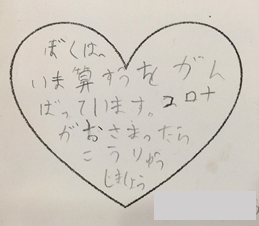 ぼくは、
いま算すうをがん
ばっています。コロナ
がおさまったら
こうりゅう
しましょう